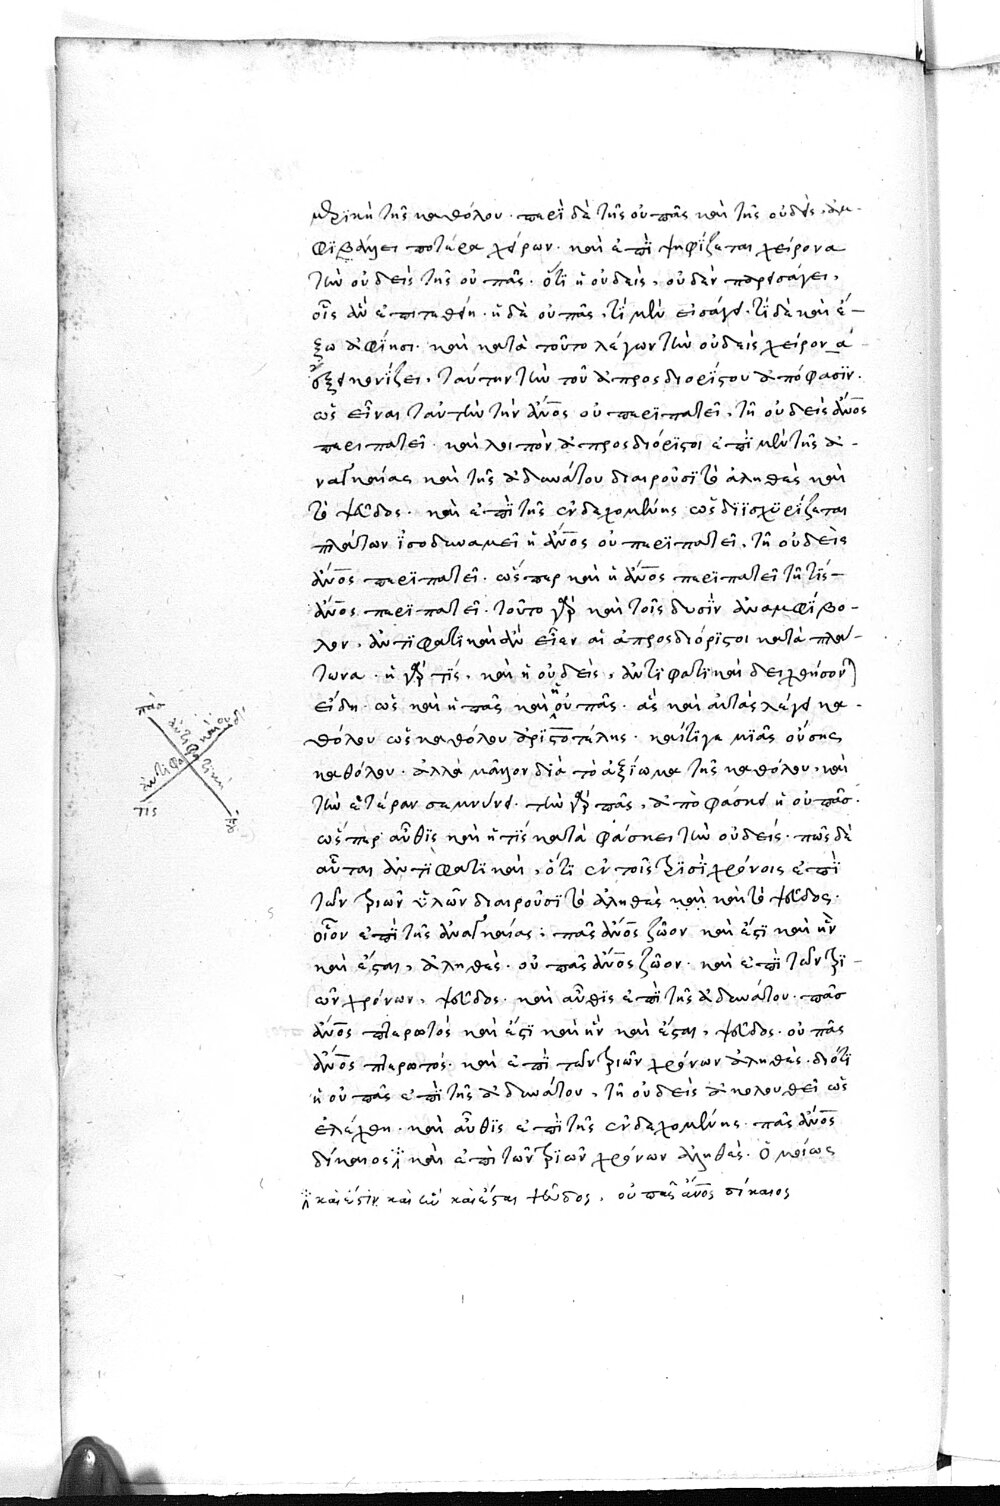 μερϊκὴ τῆς καθόλου. περὶ δὲ τῆς οὐ πᾶς καὶ τῆς οὐδεὶς, ἀμ-
φϊβάλλει ποτέρα χείρων. καὶ ἐπϊψηφΐζεται χείρονα
τὴν οὐδεὶς τῆς οὐ πᾶς. ὅτϊ ἡ οὐδεὶς, οὐδὲν προσάγει,
οἷς ἂν ἐπιτεθῆ. ἡ δὲ οὐ πᾶς, τὶ μὲν εἰσάγει. τὶ δὲ καὶ ἔ-
ξω ἀφίησι. καὶ κατὰ τοῦτο λέγων τὴν οὐδεὶς χείρον ἀ
ταύτην τὴν τοῦ ἀπροσδιορίστου ἀπόφασϊν.
ὡς εἶναι ταυτὸν τὴν ἄνος οὐ περϊπατεῖ, τῆ οὐδεὶς ἄνος
περιπατεῖ. καὶ λοιπὸν ἀπροσδιόριστοι ἐπϊ μὲν τῆς ἀ-
ναγκαίας καὶ τῆς ἀδυνάτου διαιροῦσϊ τὸ ἀληθὲς καὶ
τὸ ψεῦδος. καὶ ἐπὶ τῆς ἐνδεχομένης ὡς δϊϊσχϋρίζεται
πλάτων ἰσοδυναμεῖ ἡ ἄνος οὐ περϊπατεῖ, τῆ οὐδεὶς
ἄνος περϊπατεῖ. ὥσπερ καὶ ἡ ἄνος περϊπατεῖ τῆ τὶς
ἄνος περϊπατεῖ. τοῦτο γὰρ καὶ τοῖς δυσΐν ἀναμφϊβο-
λον. ἀντϊφατϊκαὶ ἂν εἶεν αἱ ἀπροσδιόριστοι κατὰ πλά-
τωνα. ἡ γὰρ τὶς, καὶ ἡ οὐδεὶς, ἀντϊφατϊκαὶ δειχθήσονται
εἴδη. ὡς καὶ ἡ πᾶς καὶ ἡ οὐ πᾶς. ἃς καὶ αὐτὰς λέγει κα-
θόλου ὡς καθόλου ἀριστοτέλης. καίτϊγε μϊᾶς οὔσης
καθόλου. ἀλλὰ μᾶλλον διὰ τὸ ἀξίωμα τῆς καθόλου, καὶ
τὴν ἑτέραν σεμνύνει. τὴν γὰρ πᾶς, ἀποφάσκει ἡ οὐ πᾶς.
ὥσπερ αὖθϊς καὶ ἡ τὶς καταφάσκει τὴν οὐδείς. πῶς δὲ
αὗται ἀντϊφατϊκαὶ, ὅτϊ ἐν τοῖς τρϊσὶ χρόνοις ἐπὶ
τῶν τριῶν ὑλῶν διαιροῦσϊ τὸ ἀληθὲς καὶ καὶ τὸ ψεῦδος.
οἷον ἐπὶ τῆς ἀναγκαίας: πᾶς ἄνος ζῶον καὶ ἔστϊ καὶ ἦν
καὶ ἔσται, ἀληθές. οὐ πᾶς ἄνος ζῶον. καὶ ἐπὶ τῶν τρϊ-
ῶν χρόνων, ψεῦδος. καὶ αὖθϊς ἐπὶ τῆς ἀδυνάτου. πᾶς
ἄνος πτερωτὸς καὶ ἔστϊ καὶ ἦν καὶ ἔσται, ψεῦδος. οὐ πᾶς
ἄνος πτερωτός. καὶ ἐπὶ τῶν τριῶν χρόνων ἀληθές. διότϊ
ἡ οὐ πᾶς ἐπὶ τῆς ἀδυνάτου, τῆ οὐδεὶς ἀκολουθεῖ ὡς
ἐλέχθη. καὶ αὖθϊς ἐπὶ τῆς ἐνδεχομένης. πᾶς ἄνος
δίκαιος καὶ ἐπὶ τῶν τρϊῶν χρόνων ἀληθές. Ὁμοίως
καὶ ἔστϊν καὶ ἦν καὶ ἔσται ψεῦδος, οὐ πᾶς ἄνος δίκαιος
πᾶσ
ἀντιφατικαὶ
οὐδεὶ
ἀντιφατικαί
τις